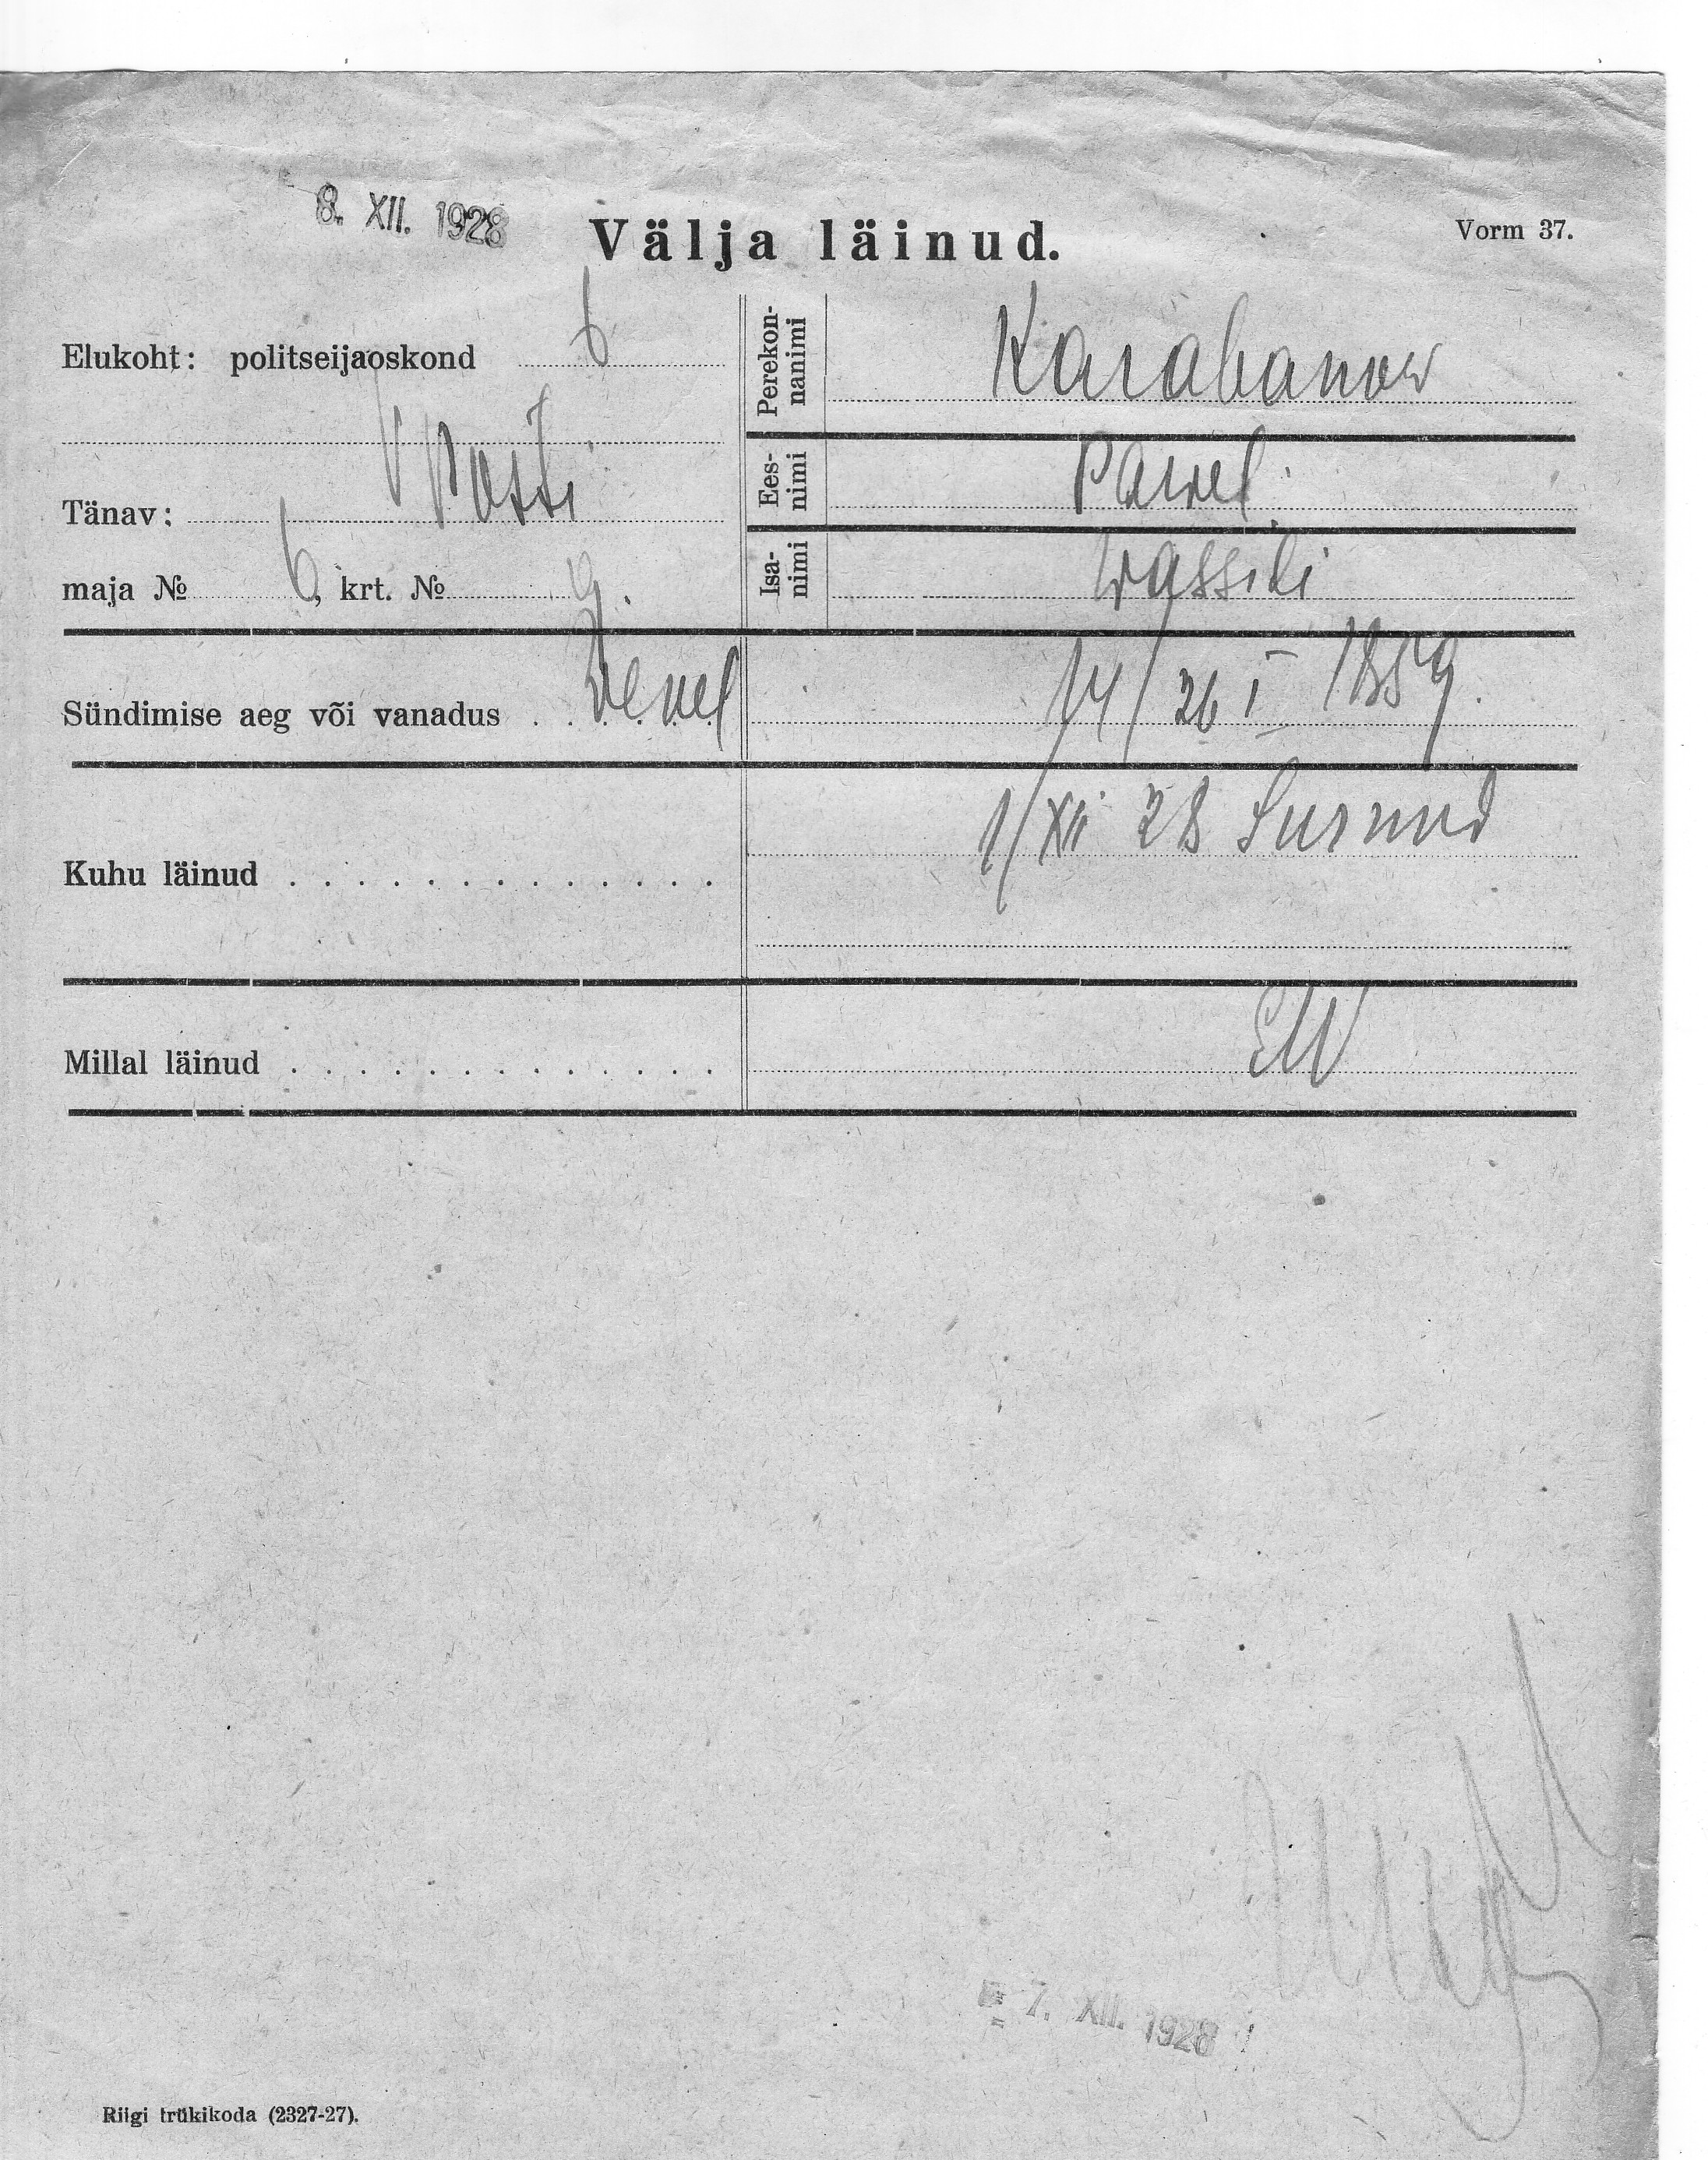 8. XII. 1928
Välja läinud.
Vorm 37.
Elukoht: politseijaoskond 6
Tänav: V Posti
maja № 6, krt. № 9.
Perekon-
nanimi
Karabanow
Ees-
nimi
Pawel.
Isa-
nimi
Wassili
Sündimise aeg või vanadus 14/26 I 1859.
Kuhu läinud 1/XII 28 Surnud
Millal läinud EW
7. XII. 1928
Riigi trükikoda (2327-27).